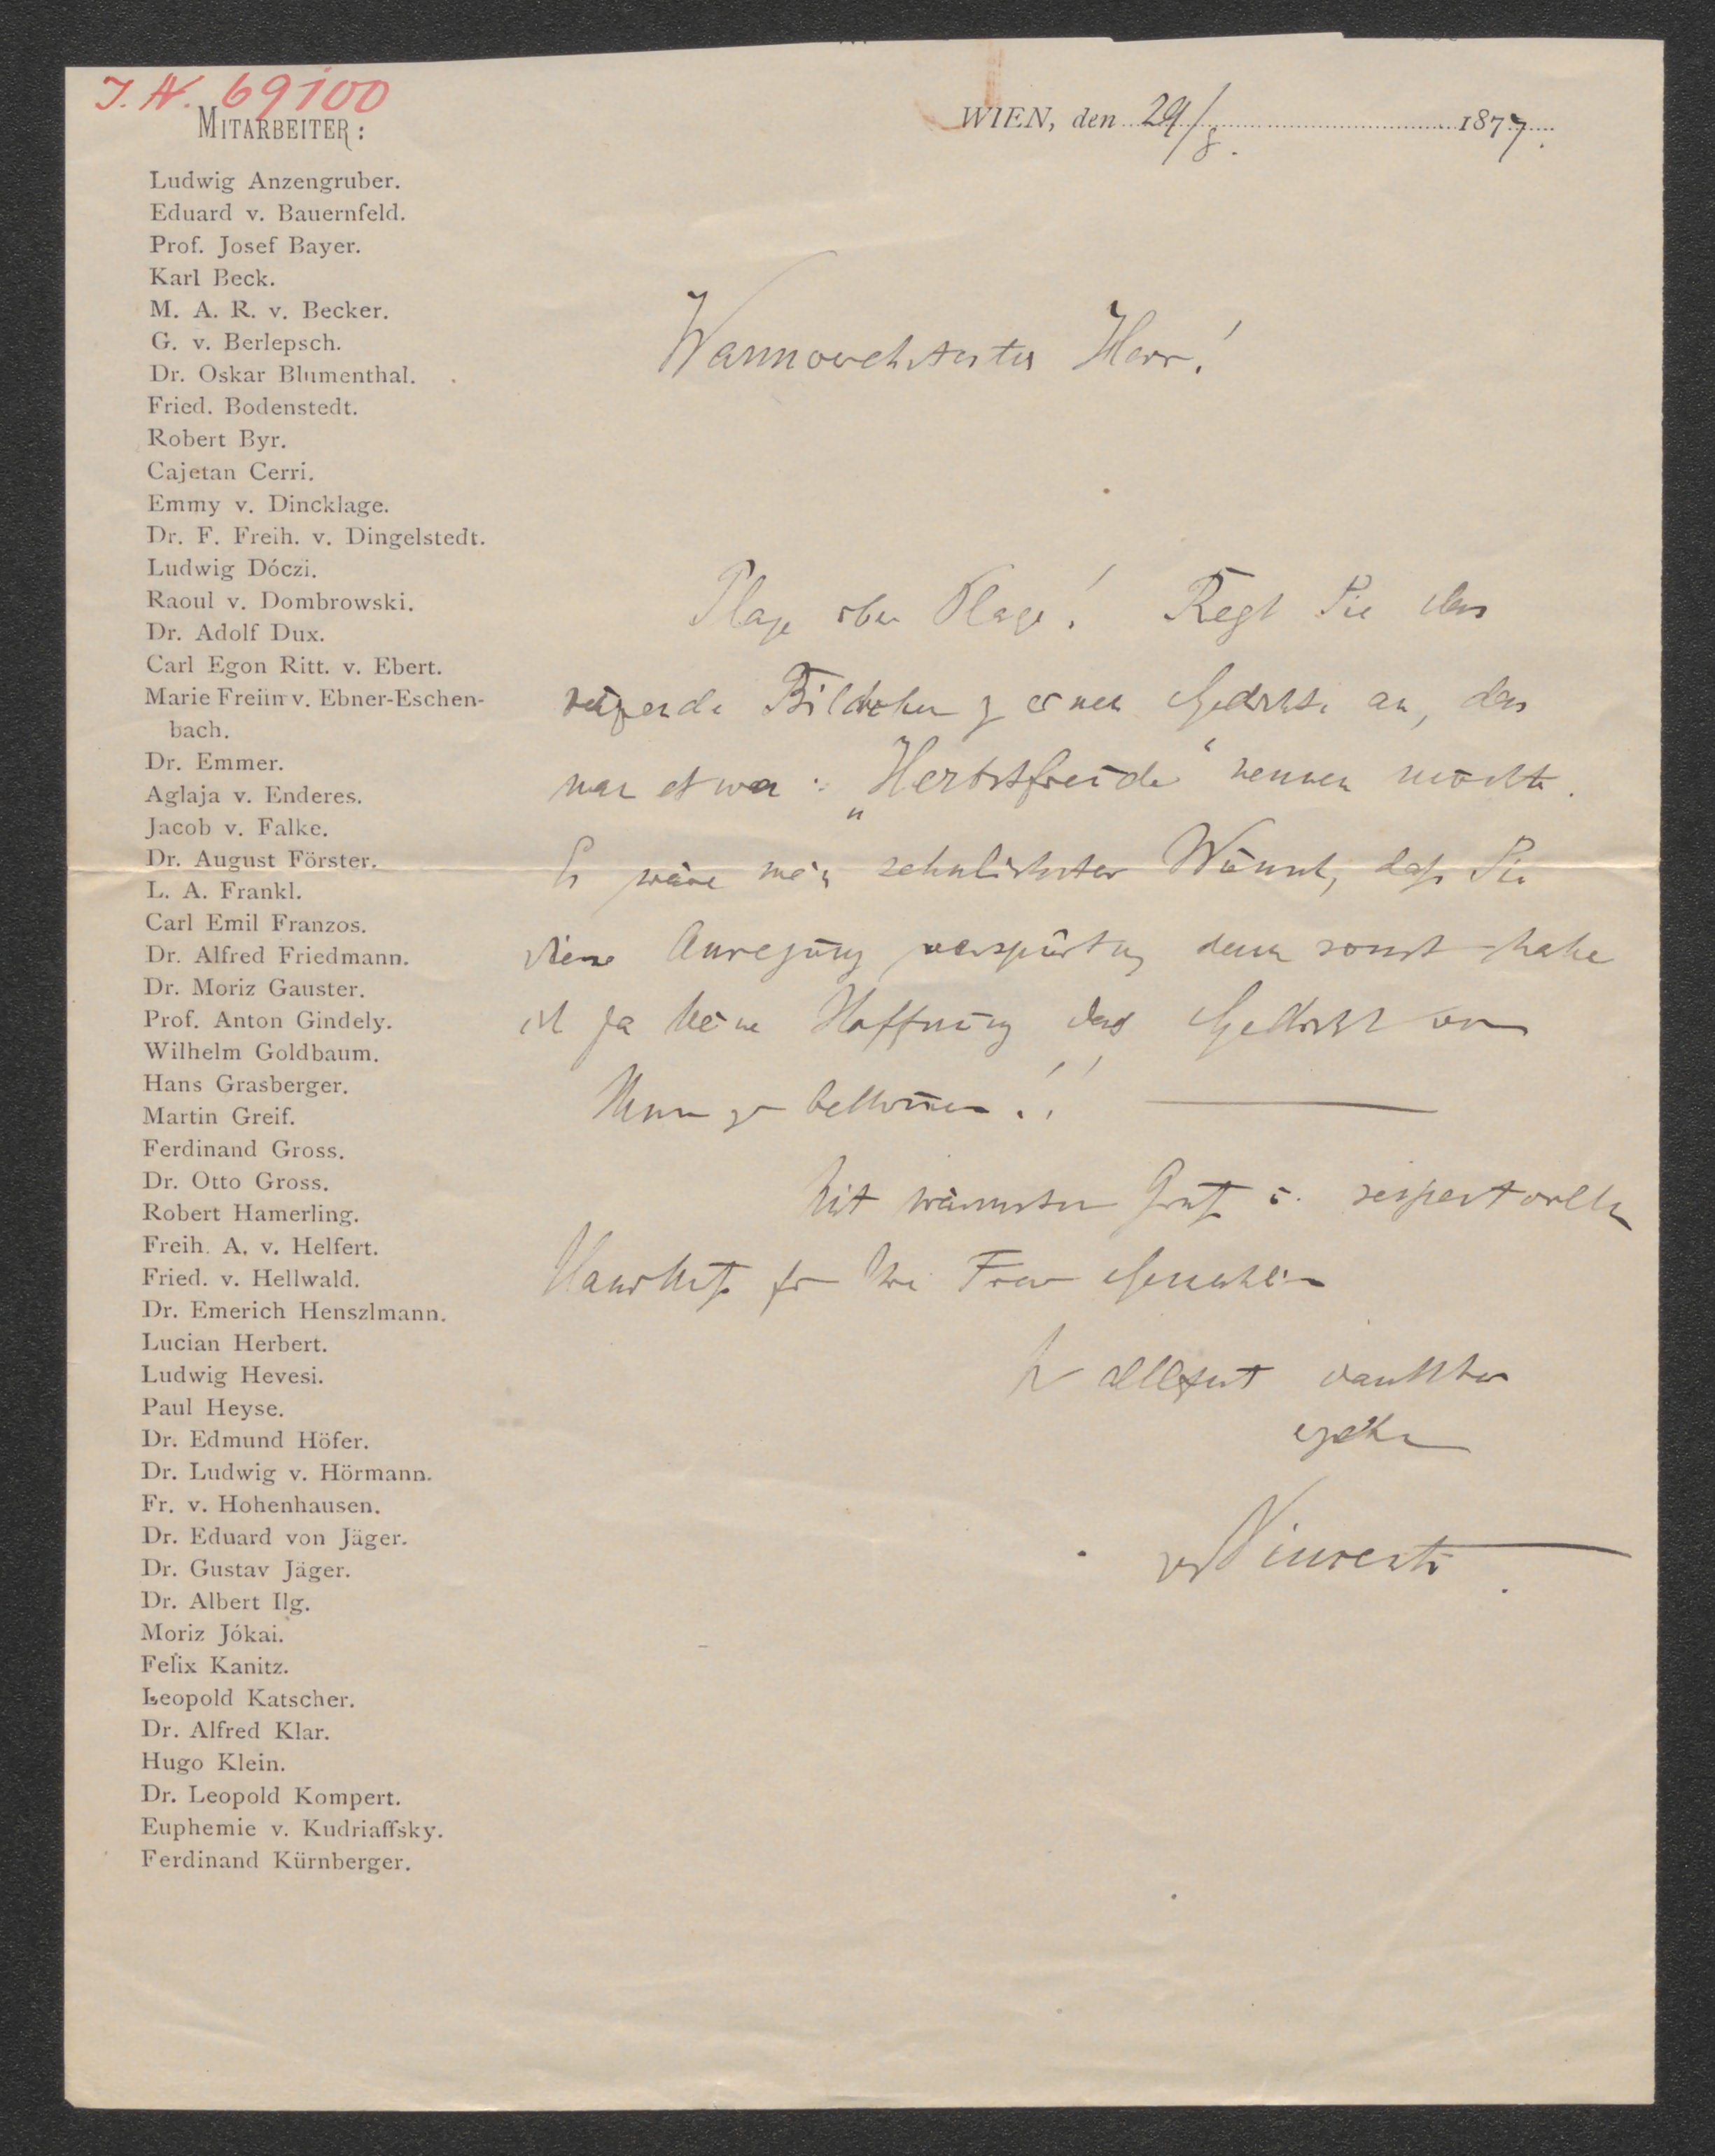 J. N. 69100
MITARBEITER:
WIEN, den 29/8. 1877.
Ludwig Anzengruber.
Eduard v. Bauernfeld.
Prof. Josef Bayer.
Karl Beck.
M. A. R. v. Becker.
G. v. Berlepsch.
Dr. Oskar Blumenthal.
Fried. Bodenstedt.
Robert Byr.
Cajetan Cerri.
Emmy v. Dincklage.
Dr. F. Freih. v. Dingelstedt.
Ludwig Dóczi.
Raoul v. Dombrowski.
Dr. Adolf Dux.
Carl Egon Ritt. v. Ebert.
Marie Freiin v. Ebner-Eschen-
bach.
Dr. Emmer.
Aglaja v. Enderes.
Jacob v. Falke.
Dr. August Förster.
L. A. Frankl.
Carl Emil Franzos.
Dr. Alfred Friedmann.
Dr. Moriz Gauster.
Prof. Anton Gindely.
Wilhelm Goldbaum.
Hans Grasberger.
Martin Greif.
Ferdinand Gross.
Dr. Otto Gross.
Robert Hamerling.
Freih. A. v. Helfert.
Fried. v. Hellwald.
Dr. Emerich Henszlmann.
Lucian Herbert.
Ludwig Hevesi.
Paul Heyse.
Dr. Edmund Höfer.
Dr. Ludwig v. Hörmann.
Fr. v. Hohenhausen.
Dr. Eduard von Jäger.
Dr. Gustav Jäger.
Dr. Albert Ilg.
Moriz Jókai.
Felix Kanitz.
Leopold Katscher.
Dr. Alfred Klar.
Hugo Klein.
Dr. Leopold Kompert.
Euphemie v. Kudriaffsky.
Ferdinand Kürnberger.
Warmverehrtester Herr!
Plage über Plage! Regt Sie das
reizende Bildchen z einem Gedichte an, das
man etwa: „Herbstfreude“ nennen möchte.
Es wäre mein sehnlichster Wunsch, daß Sie
diese Anregung verspürten, denn sonst habe
ich ja keine Hoffnung das Gedicht von
Ihnen zu bekommen!! —
Mit wärmsten Gruß u. respectvollen
Handkuß für Ihre Frau Gemahlin
Ihr allzeit dankbar
ergebener
vVincenti.